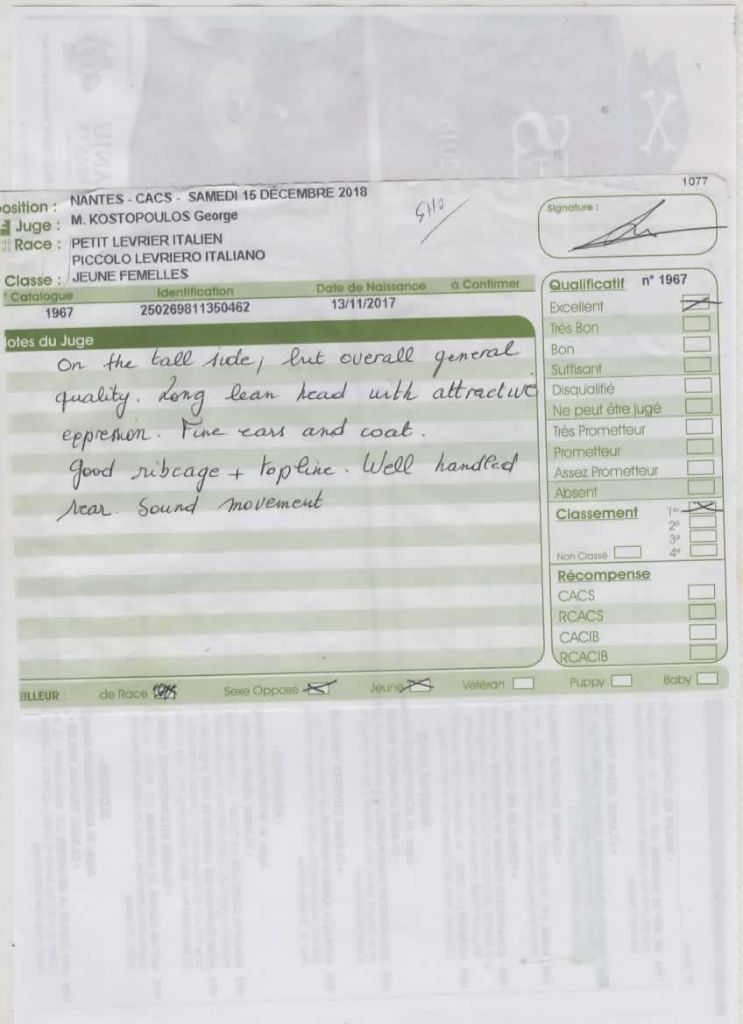 1077
osition : NANTES - CACS - SAMEDI 15 DÉCEMBRE 2018
Juge : M. KOSTOPOULOS George
Race : PETIT LEVRIER ITALIEN
PICCOLO LEVRIERO ITALIANO
Classe : JEUNE FEMELLES
Signature :
Catalogue Identification Date de Naissance à Confirmer
1967 250269811350462 13/11/2017
otes du Juge
On the tall side, but overall general
quality. Long lean head with attractive
expression. Fine ears and coat.
Good ribcage + topline. Well handled
rear. Sound movement
Qualificatif n° 1967
Excellent
Très Bon
Bon
Suffisant
Disqualifié
Ne peut être jugé
Très Prometteur
Prometteur
Assez Prometteur
Absent
Classement 1°
2°
3°
Non Classé 4°
Récompense
CACS
RCACS
CACIB
RCACIB
EILLEUR : de Race Sexe Opposé Jeune Vétéran Puppy Baby